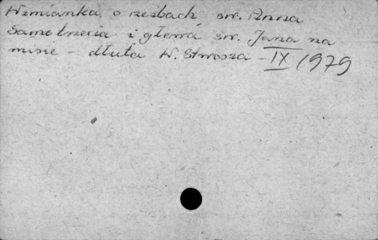 Wzmianka o rzeźbach św. Anna
Samotrzecia i głowa św. Jana na
misie - dłuta W. Stwosza - IX 1979